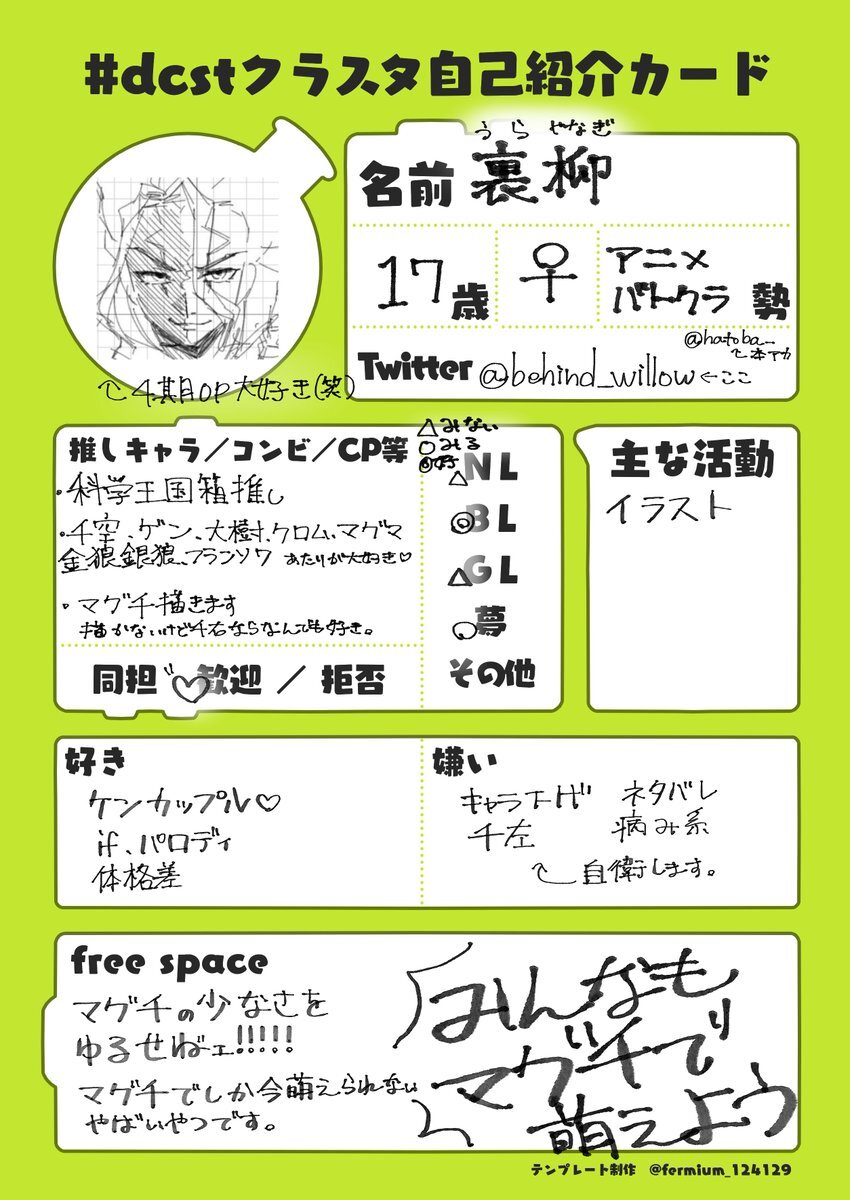 #dcstクラスタ自己紹介カード
うら やなぎ
名前 裏柳
17歳
♀
アニメ
バトクラ 勢
@hatoba_
↑本アカ
Twitter @behind_willow←ここ
↑4期目OP大好き(笑)
推しキャラ/コンビ/CP等
・科学王国箱推し
・千空、ゲン、大樹、クロム、マグマ
金狼銀狼、フランソワ あたりが大好き♡
・マグ千描きます
描かないけど千右ならなんでも好き。
同担 ♡歓迎 / 拒否
△みない
○みる
◎好
△NL
◎BL
△GL
○夢
その他
主な活動
イラスト
好き
ケンカップル♡
if、パロディ
体格差
嫌い
キャラ下げ ネタバレ
千左 病み系
↑自衛します。
free space
マグ千の少なさを
ゆるせねェ!!!!!
マグ千でしか今萌えられない
やばいやつです。
「みんなも
マグ千で
萌えよう
テンプレート制作 @fermium_124129